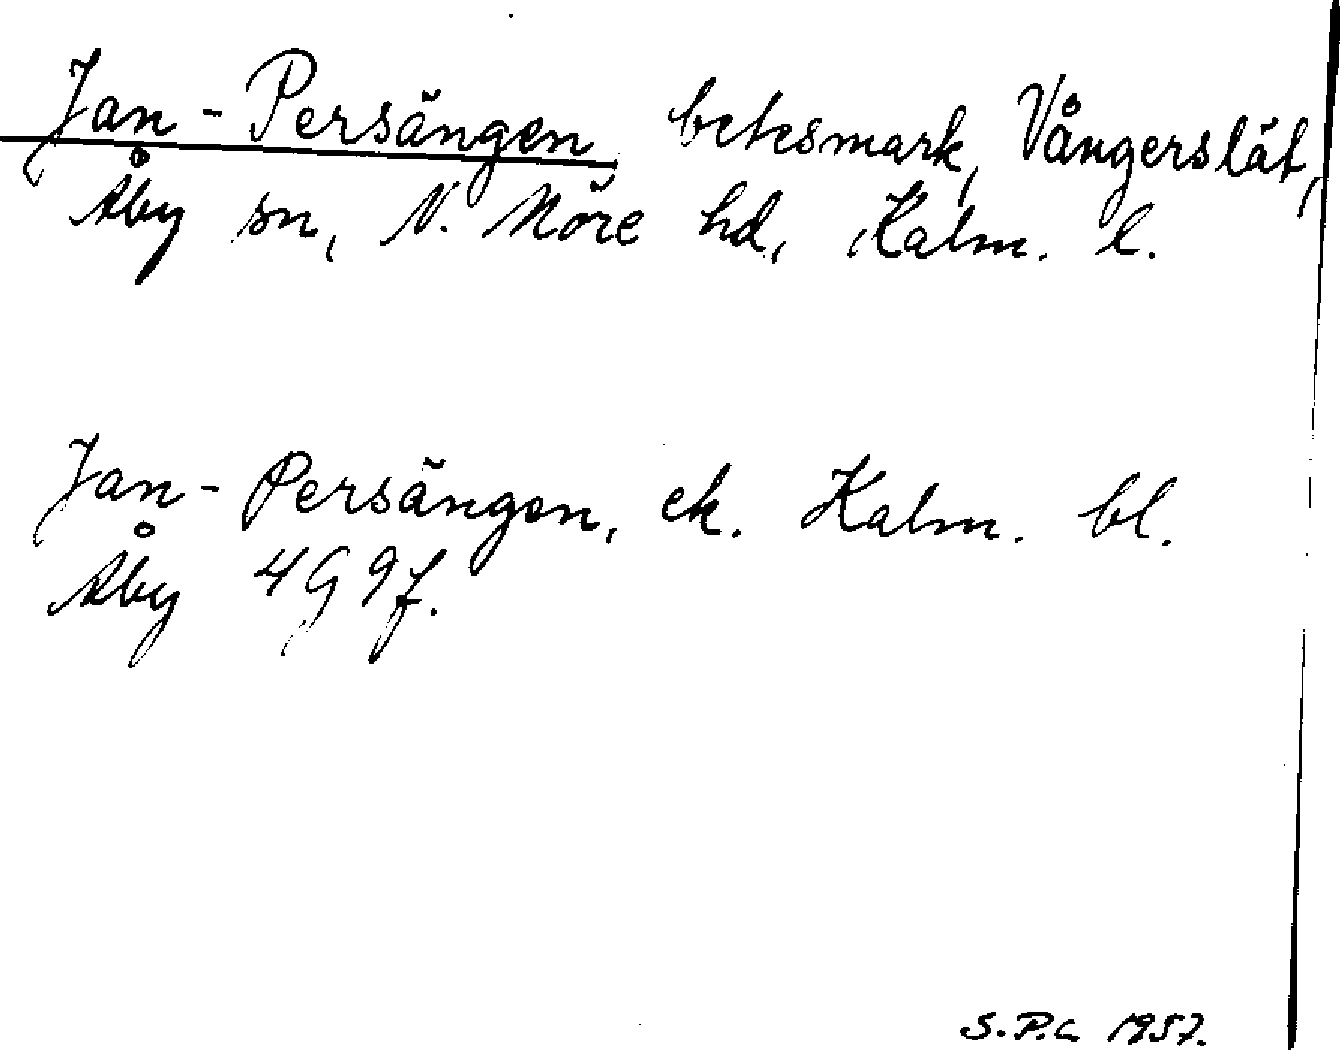 Jan-Persängen betesmark, Vångerslät,
Åby sn, N. Möre hd, Kalm. l.
Jan-Persängen, ek. Kalm. bl.
Åby 4G 9f.
S.P.L 1957.